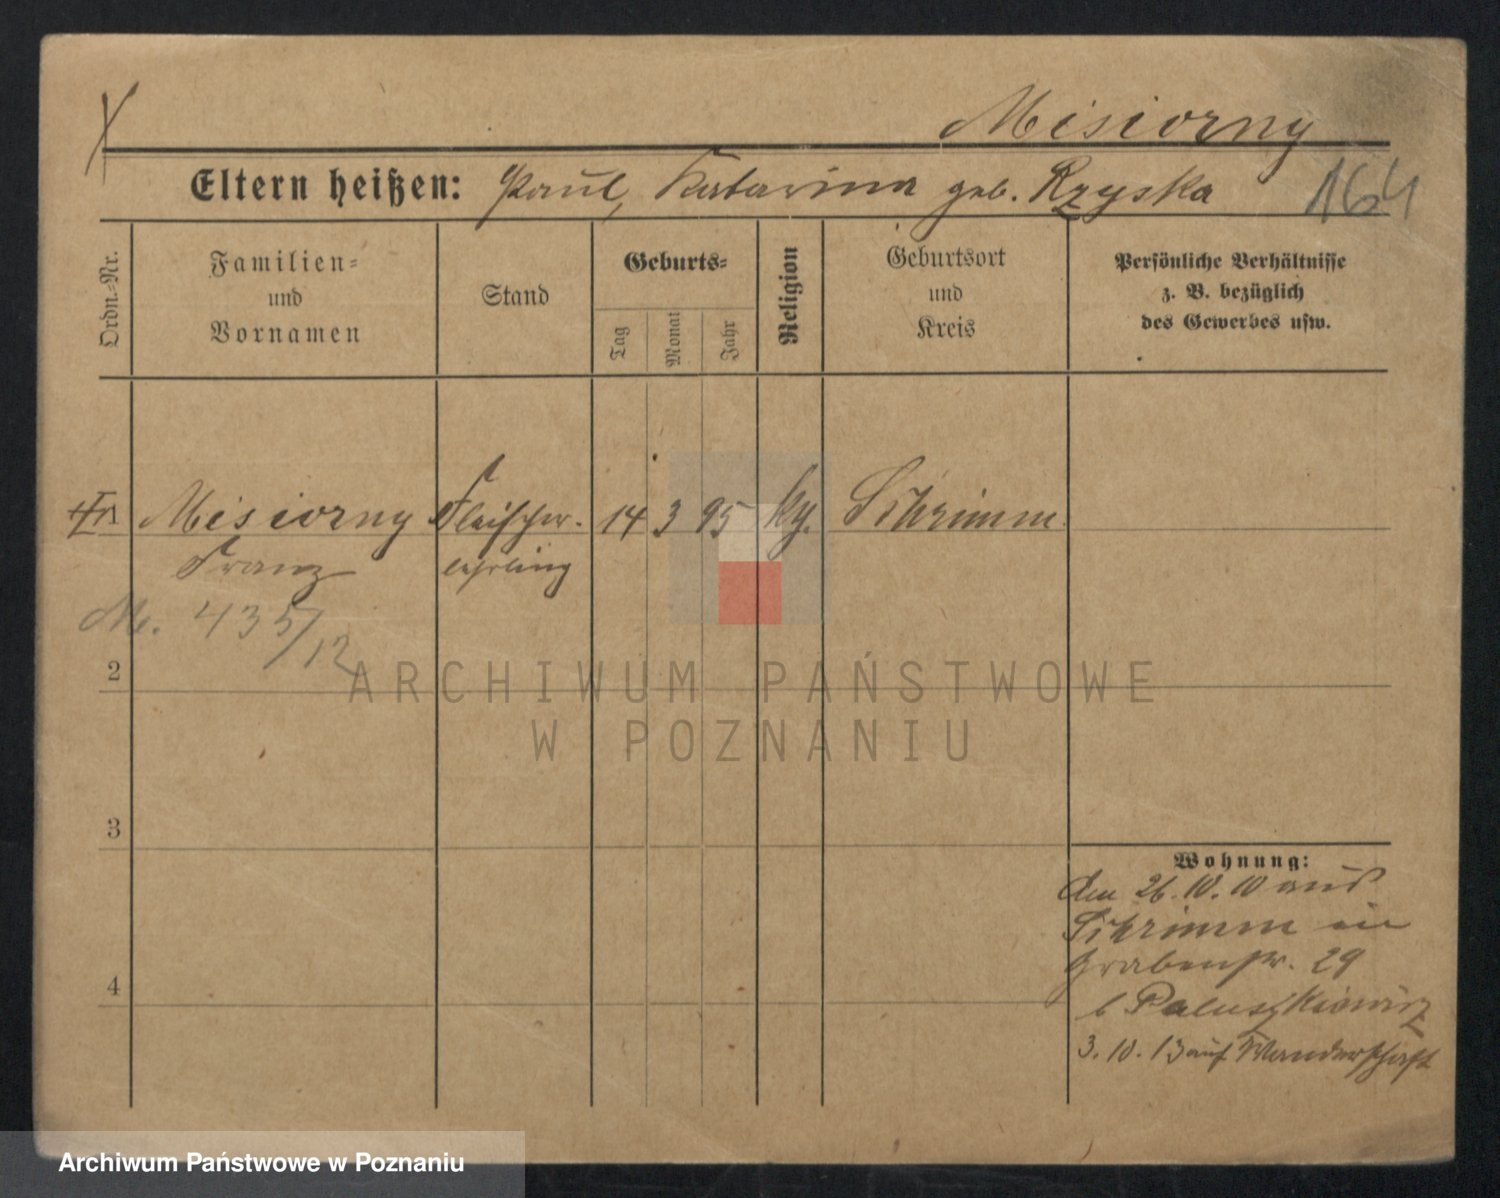 Misiorny
Eltern heißen: Paul, Katarina geb. Rzyska
164
Ordn.-Nr.
Familien-
und
Vornamen
Stand
Geburts-
Tag
Monat
Jahr
Religion
Geburtsort
und
Kreis
Persönliche Verhältnisse
z. B. bezüglich
des Gewerbes usw.
Misiorny Fleischer- 14 3 95 kg. Schrimm
Franz lehrling
M. 435/12
2
3
4
Wohnung:
Am 26.10.10 aus
Schrimm in
Grabenstr. 29
b Paluszkiewicz
3.10.13 auf Wanderschaft
ARCHIWUM PAŃSTWOWE
W POZNANIU
Archiwum Państwowe w Poznaniu